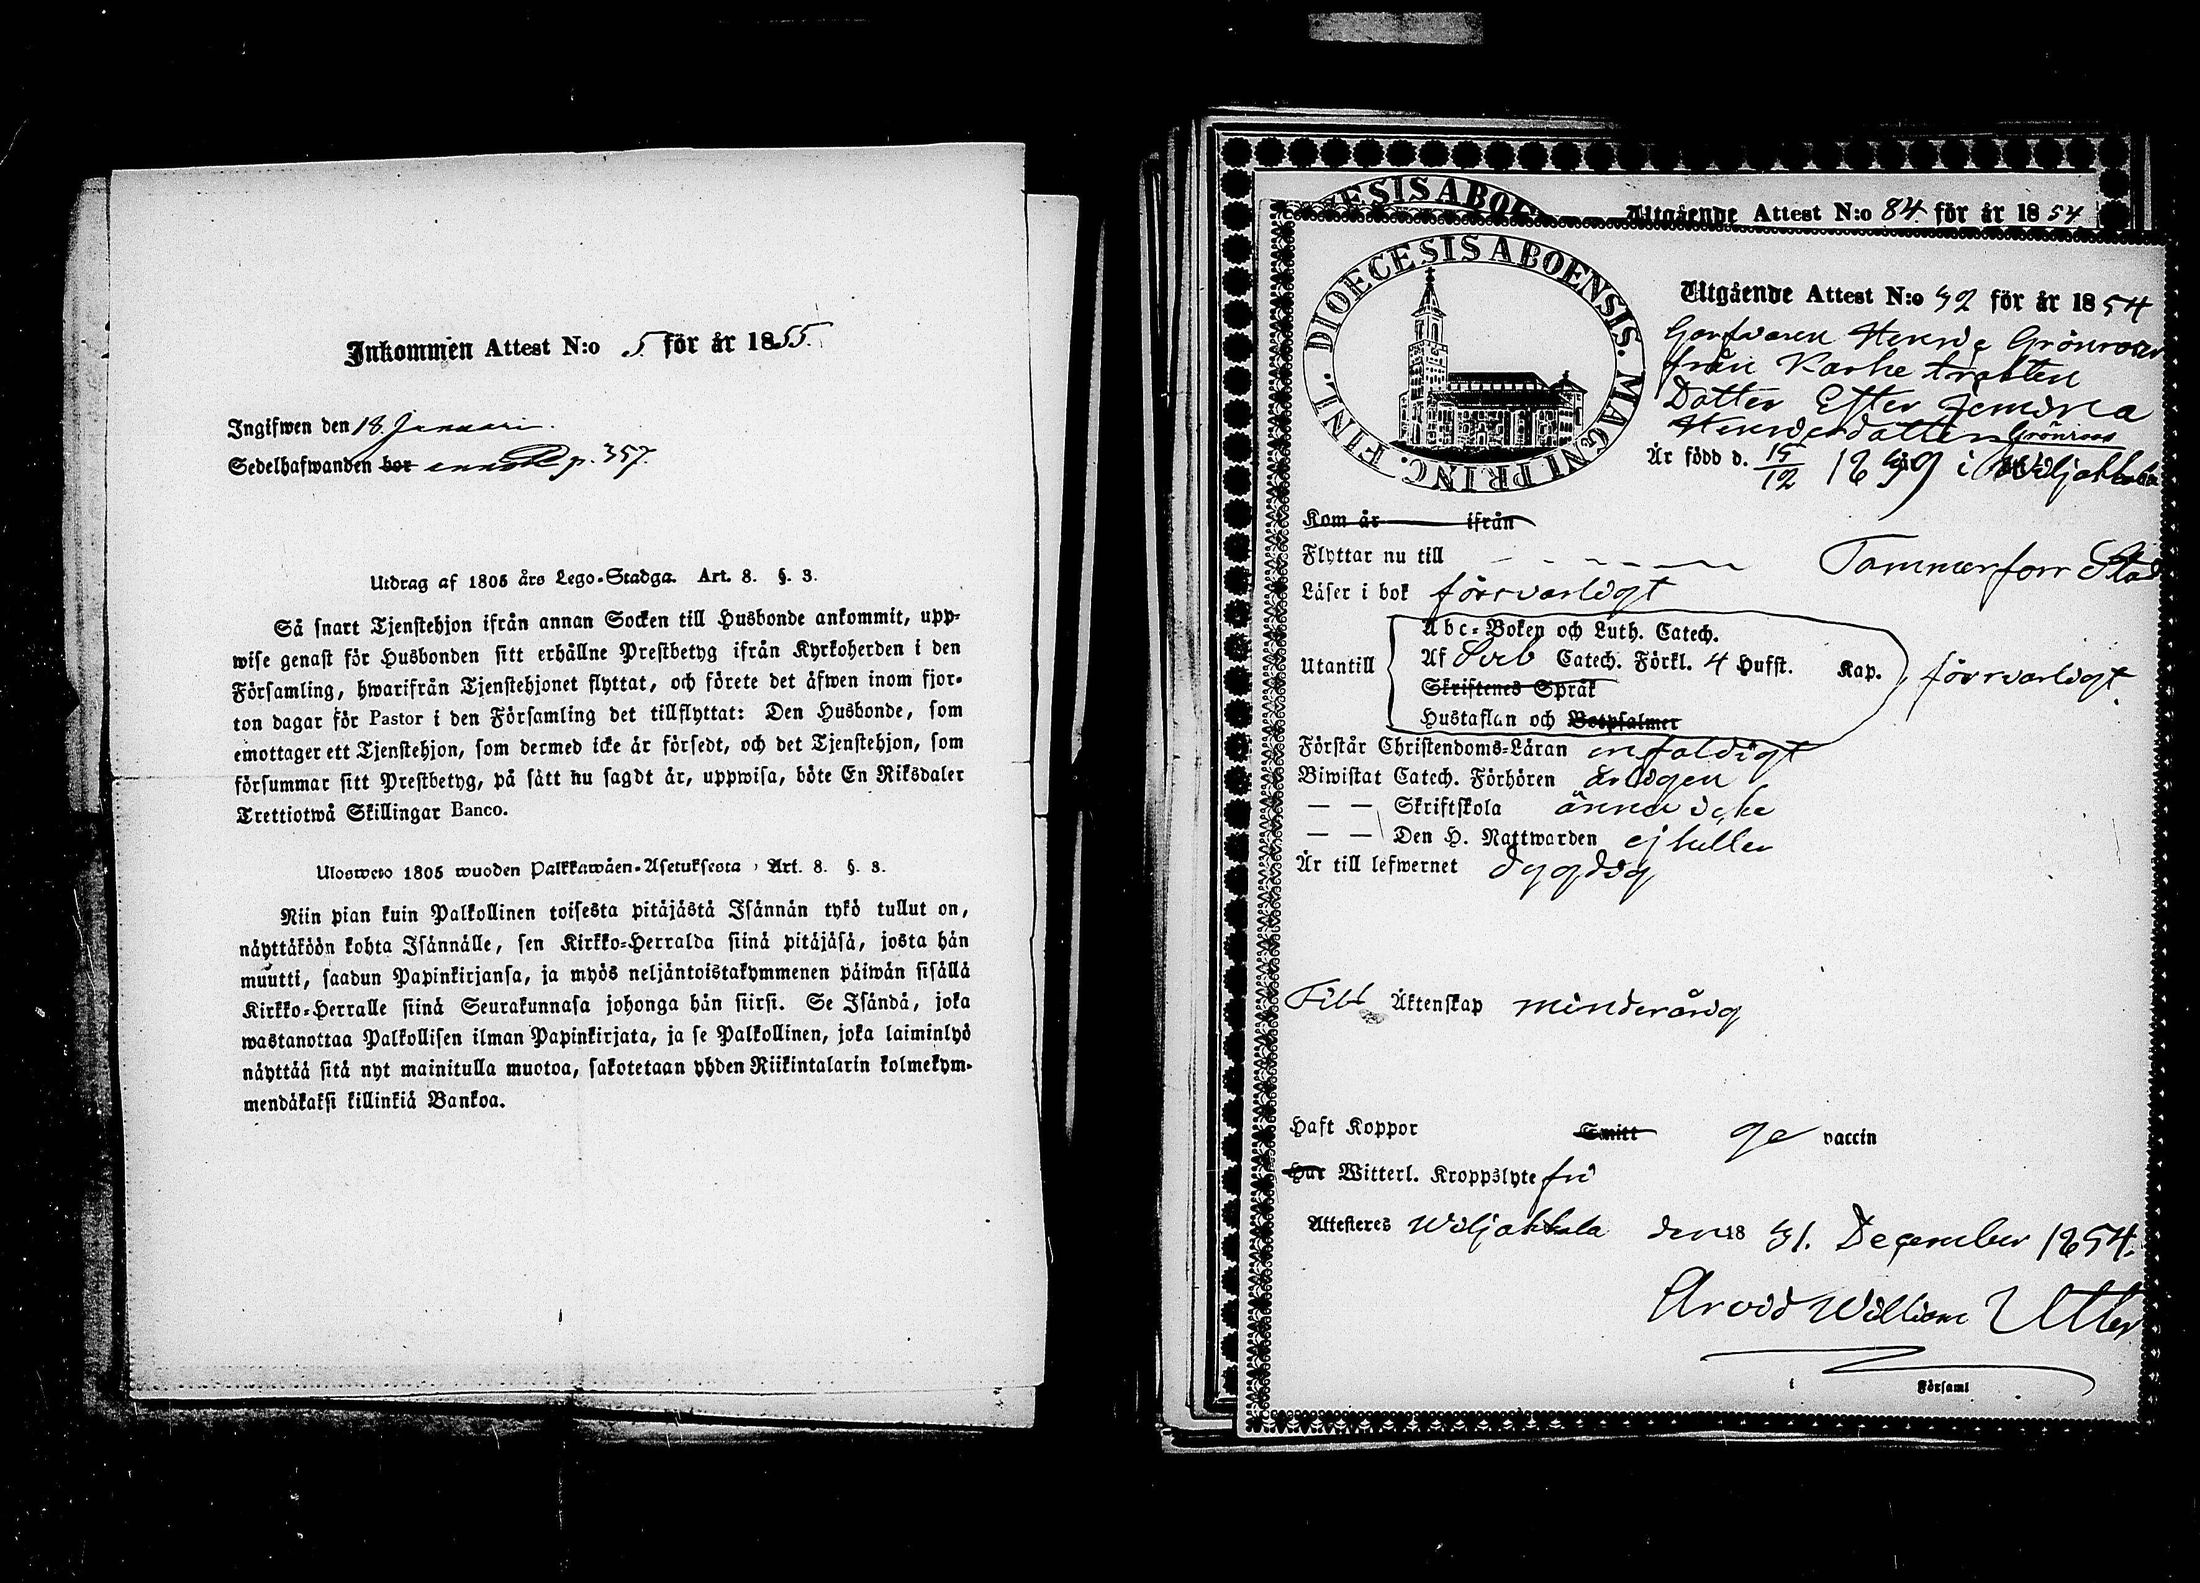 Inkommen Attest N:o 5. för år 1855.
Ingifwen den 18. Januari.
Sedelhafwanden bor p. 357.
Utdrag af 1805 års Lego-Stadga. Art. 8. §. 3.
Så snart Tjenstehjon ifrån annan Socken till Husbonde ankommit, upp-
wise genast för Husbonden sitt erhållne Prestbetyg ifrån Kyrkoherden i den
Församling, hwarifrån Tjenstehjonet flyttat, och förete det äfwen inom fjor-
ton dagar för Pastor i den Församling det tillflyttat: Den Husbonde, som
emottager ett Tjenstehjon, som dermed icke är försedt, och det Tjenstehjon, som
försummar sitt Prestbetyg, på sätt nu sagdt är, uppwisa, böte En Riksdaler
Trettiotwå Skillingar Banco.
Ulosweto 1805 wuoden Palkkawäen-Asetuksesta, Art. 8. §. 3.
Niin pian kuin Palkollinen toisesta pitäjästä Isännän tykö tullut on,
näyttäköön kohta Isännälle, sen Kirkko-Herralda siinä pitäjäsä, josta hän
muutti, saadun Papinkirjansa, ja myös neljäntoistakymmenen päiwän sisällä
Kirkko-Herralle siinä Seurakunnasa johonga hän siirsi. Se Isändä, joka
wastanottaa Palkollisen ilman Papinkirjata, ja se Palkollinen, joka laiminlyö
näyttää sitä nyt mainitulla muotoa, sakotetaan yhden Riikintalarin kolmekym-
mendäkaksi killinkiä Bankoa.
ESIS ABOE
Utgående Attest N:o 84 för år 1854
DIOECESIS ABOENSIS. MAGNI PRINC. FINL.
Utgående Attest N:o 32 för år 1854
Garfvaren Grönroos
från Karhe trakten
Dotter Ester
Grönroos
Är född d. 15/12 1839 i Wiljakkala
Kom år ifrån
Flyttar nu till Tammerfors Stad
Läser i bok försvarligt
Abc-Boken och Luth. Catech.
Utantill Af Sveb Catech. Förkl. 4 Hufst. Kap. försvarligt.
Skriftenes Språk
Hustaflan och Botpsalmer
Förstår Christendoms-Läran enfaldigt
Biwistat Catech. Förhören årligen
— — Skriftskola ännu icke
— — Den H. Nattwarden ej heller
Är till lefwernet dygdig
Till Äktenskap minderårig
Haft Koppor Smitt ge vaccin
Har Witterl. Kroppslyte fri
Attesteres Wiljakkala den 18 31. December 1854.
Arvid William Utter
i Församl